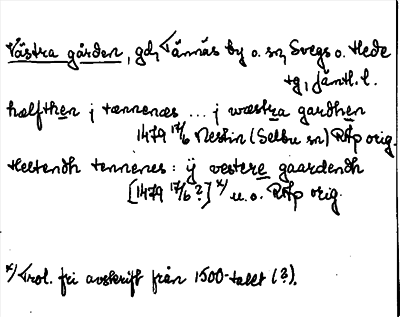 Västra gården, gd, Tännäs by o. sn, Svegs o. Hede
tg, Jämtl. l.
halfthen j tænnenæs ... j wæstra gardhen
1479 17/6 Neskin (Selbu sn) RAp orig.
Heltendh tennenes : ij vestere gaardendh
[1479 17/6 ?] x) u.o. RAp orig.
x) Trol. fri avskrift från 1500-talet (?).